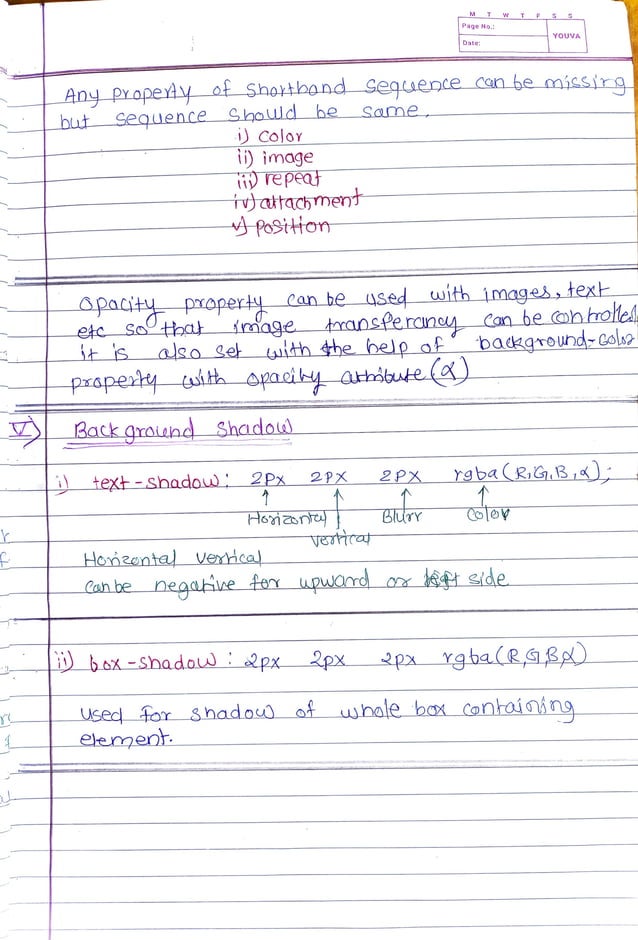 M T W T F S S
Page No.:
YOUVA
Date:
Any property of shorthand sequence can be missing
but sequence should be same.
i) color
ii) image
iii) repeat
iv) attachment
v) position
opacity property can be used with images, text
etc so that image transperancy can be controlled
it is also set with the help of background-color
property with opacity attribute (α)
V) Background shadow
i) text-shadow: 2px 2px 2px rgba(R,G,B,α);
Horizontal Blurr Color
vertical
Horizontal vertical
can be negative for upward or left side
ii) box-shadow: 2px 2px 2px rgba(R,G,B,α)
used for shadow of whole box containing
element.